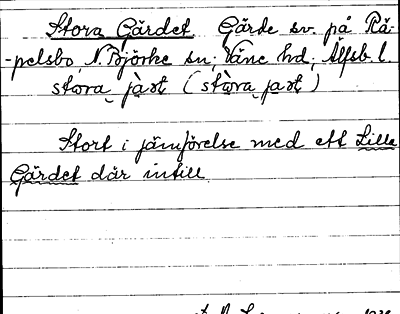 Stora Gärdet Gärde sv. på Rä-
-pelsbo, N. Björke sn; Väne hd; Älfsb. l.
stora jàst (stàra jast)
Stort i jämförelse med ett Lilla
Gärdet där intill